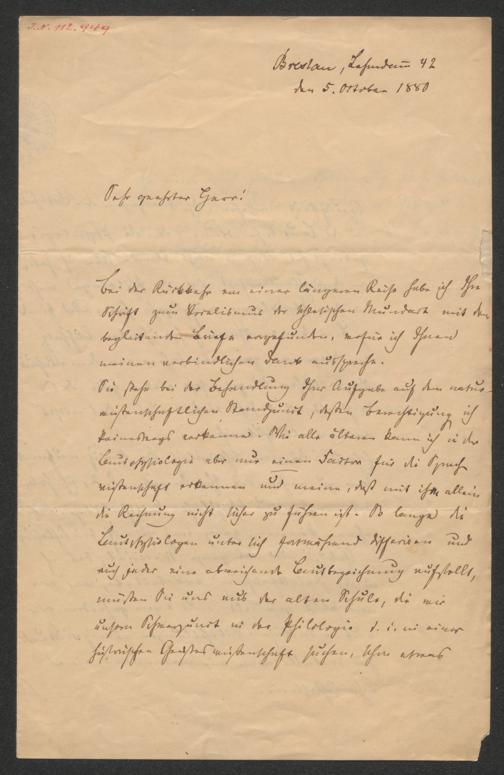 I.N. 112.949
Breslau, Lehmdamm 42
den 5. October 1880
Sehr geehrter Herr!
Bei der Rückkehr von einer längeren Reise habe ich Ihre
Schrift zum Vocalismus der schlesischen Mundart mit dem
begleitenden Briefe vorgefunden, wofür ich Ihnen
meinen verbindlichen Dank ausspreche.
Sie stehn bei der Behandlung Ihrer Aufgabe auf dem natur-
wissenschaftlichen Standpunkt, dessen Berechtigung ich
keineswegs verkenne. Wie alle älteren kann ich in der
Lautphysiologie aber nur einen Factor für die Sprach-
wissenschaft erkennen und meine, daß mit ihm allein
die Rechnung nicht sicher zu führen ist. So lange die
Lautphysiologen unter sich fortwährend differiren und
auch jeder eine abweichende Lautbezeichnung aufstellt,
müssen Sie uns aus der alten Schule, die wir
unsern Schwerpunkt in der Philologie d. i. in einer
historischen Geisteswissenschaft suchen, schon etwas